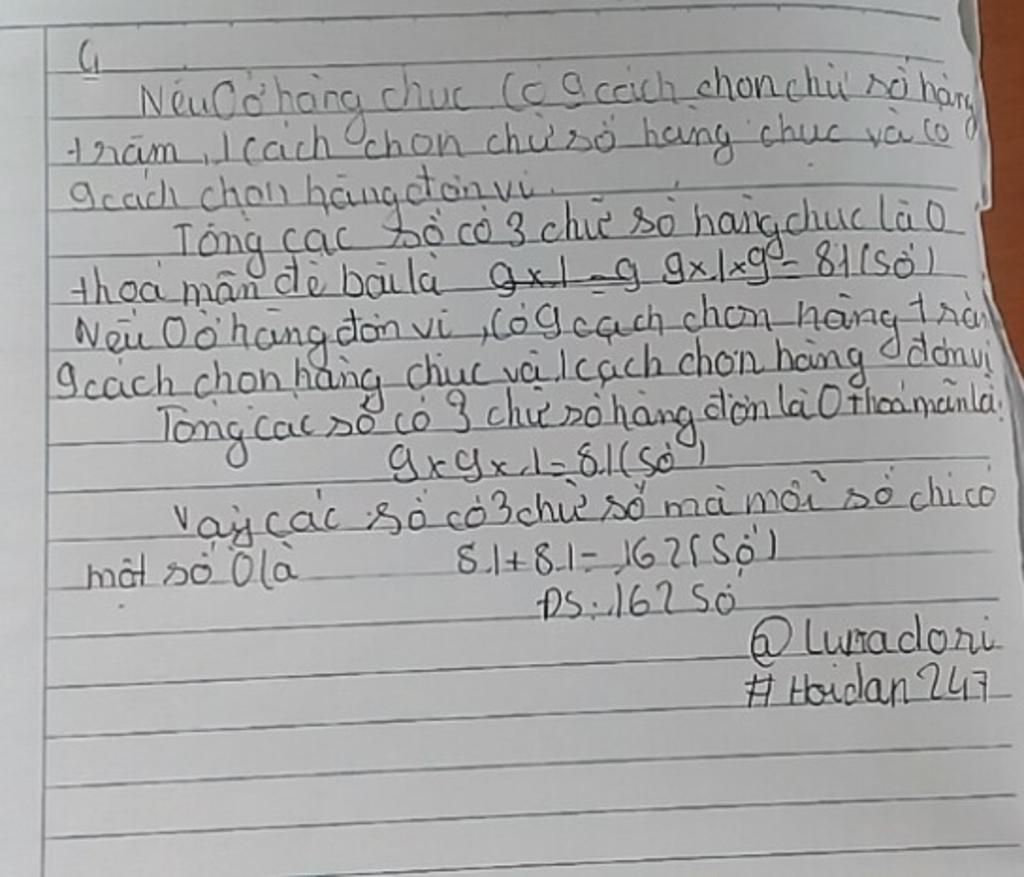 4
Nếu 0 ở hàng chục có 9 cách chọn chữ số hàng
trăm, 1 cách chọn chữ số hàng chục và có
9 cách chọn hàng đơn vị.
Tổng các số có 3 chữ số hàng chục là 0
thoả mãn đề bài là 9x1=9 9x1x9=81(số)
Nếu 0 ở hàng đơn vị, có 9 cách chọn hàng tră
9 cách chọn hàng chục và 1 cách chọn hàng đơn vị
Tổng các số có 3 chữ số hàng đơn là 0 thoả mãn là:
9x9x1=81(số)
Vậy các số có 3 chữ số mà mỗi số chỉ có
một số 0 là 81+81=162(số)
ĐS: 162 số
@Lunadoni
#Hoidan247